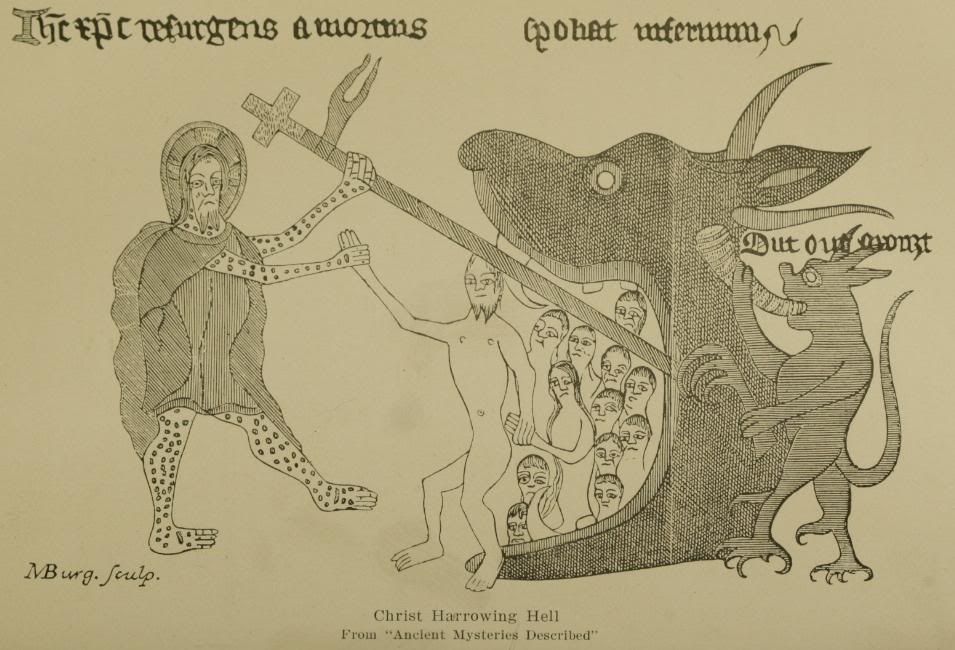 Ihc xpc resurgens a mortuis spoliat infernum
Out out aronzt
MBurg. Sculp.
Christ Harrowing Hell
From "Ancient Mysteries Described"